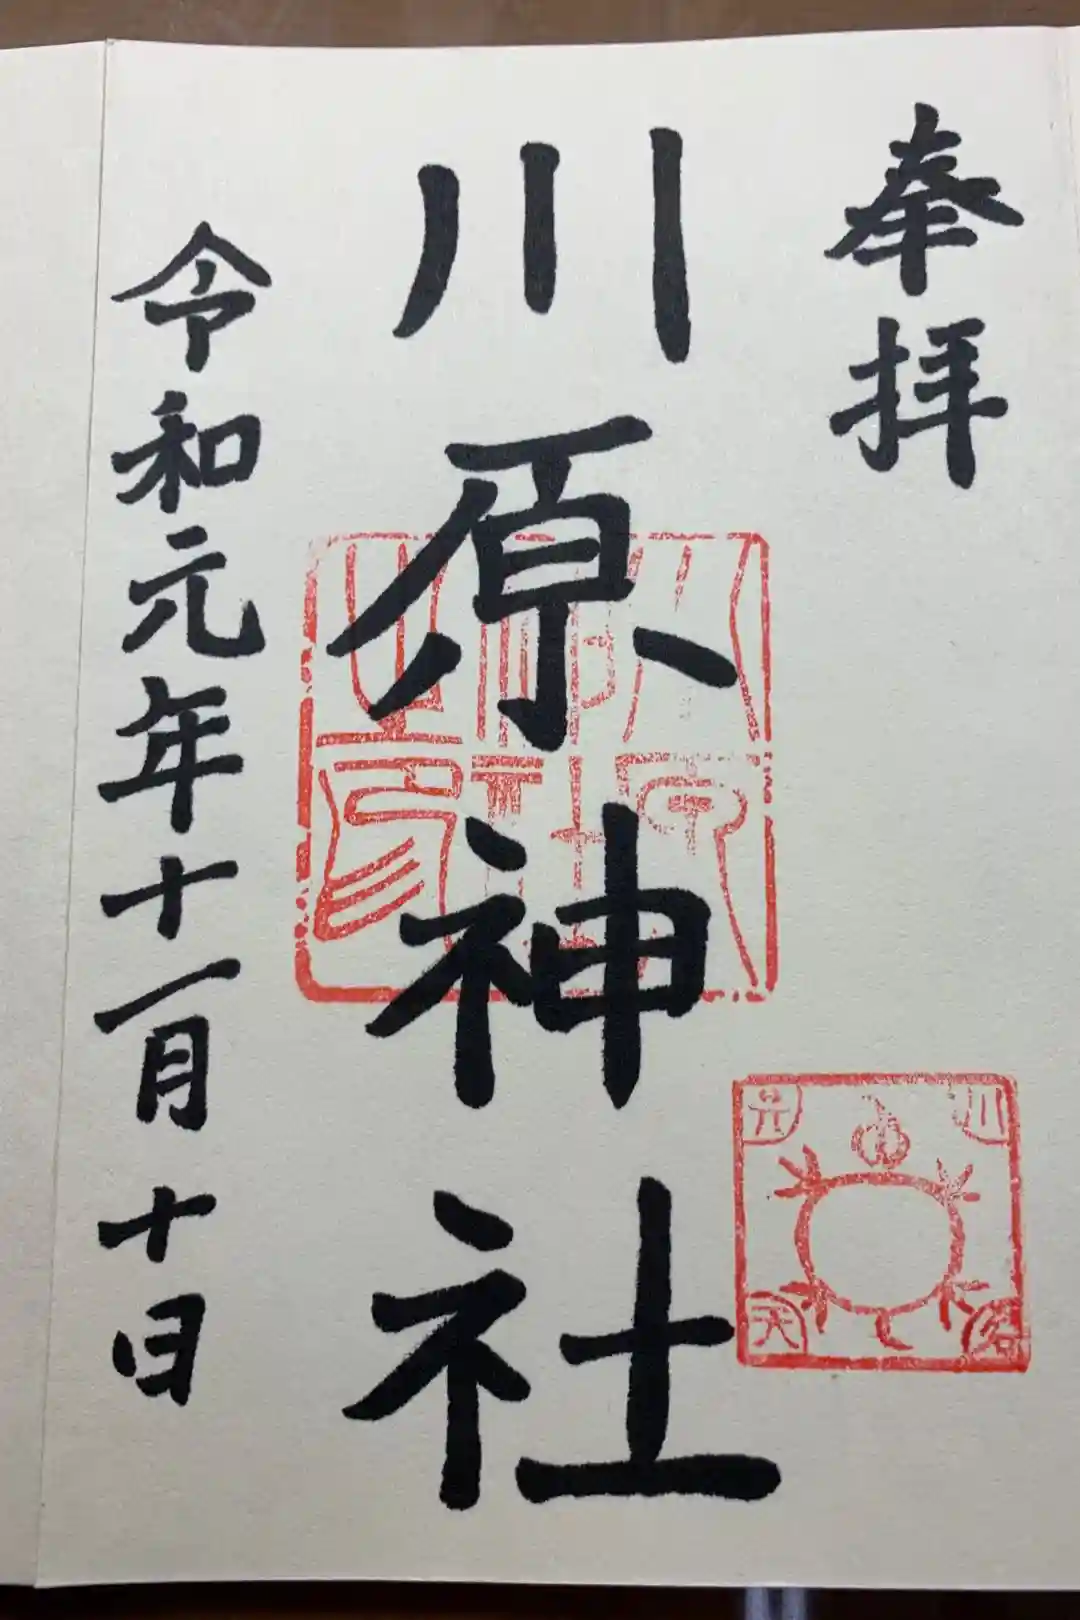 奉拝
川原神社
令和元年十一月十日
川原神社之印
川
名
弁
天